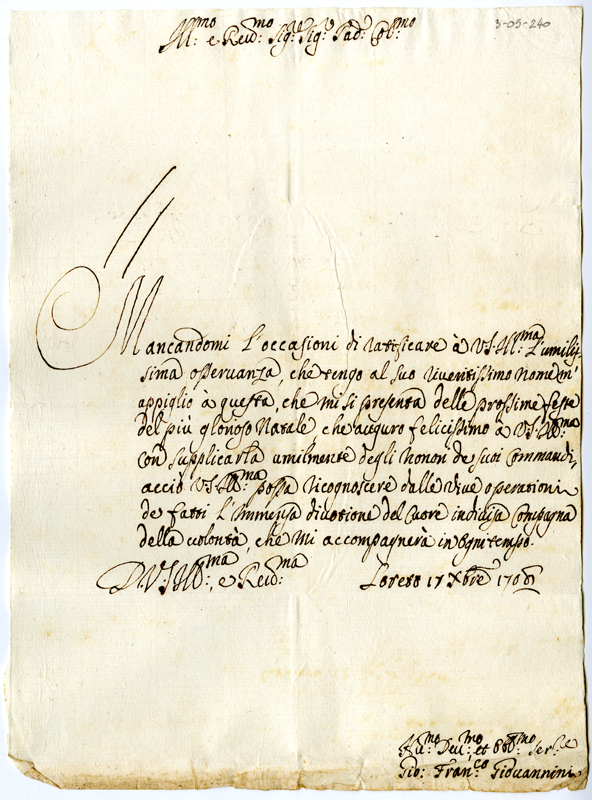 3-05-240
Ill:mo e Reud:mo Sig:r Sig:r Pad: Col:mo
Mancandomi l'occasioni di ratificare à V.S. Ill:ma l'umilis-
sima osseruanza, che tengo al suo riueritissimo nome m'
appiglio à questa, che mi si presenta delle prossime feste
del più glorioso Natale che auguro felicissimo à V.S. Ill:ma
con supplicarla umilmente degli honori de suoi Commandi,
acciò V.S. Ill:ma possa ricognoscere dalle viue operationi
de fatti l'immensa diuotione del Cuore indiuisa Compagna
della volontà, che mi accompagnerà in ogni tempo.
D.V.S. Ill:ma, e Reud:ma Loreto 17 Xbre
Hu:mo Deu:mo et Obb:mo Ser:e
Gio: Fran:co Giouannini